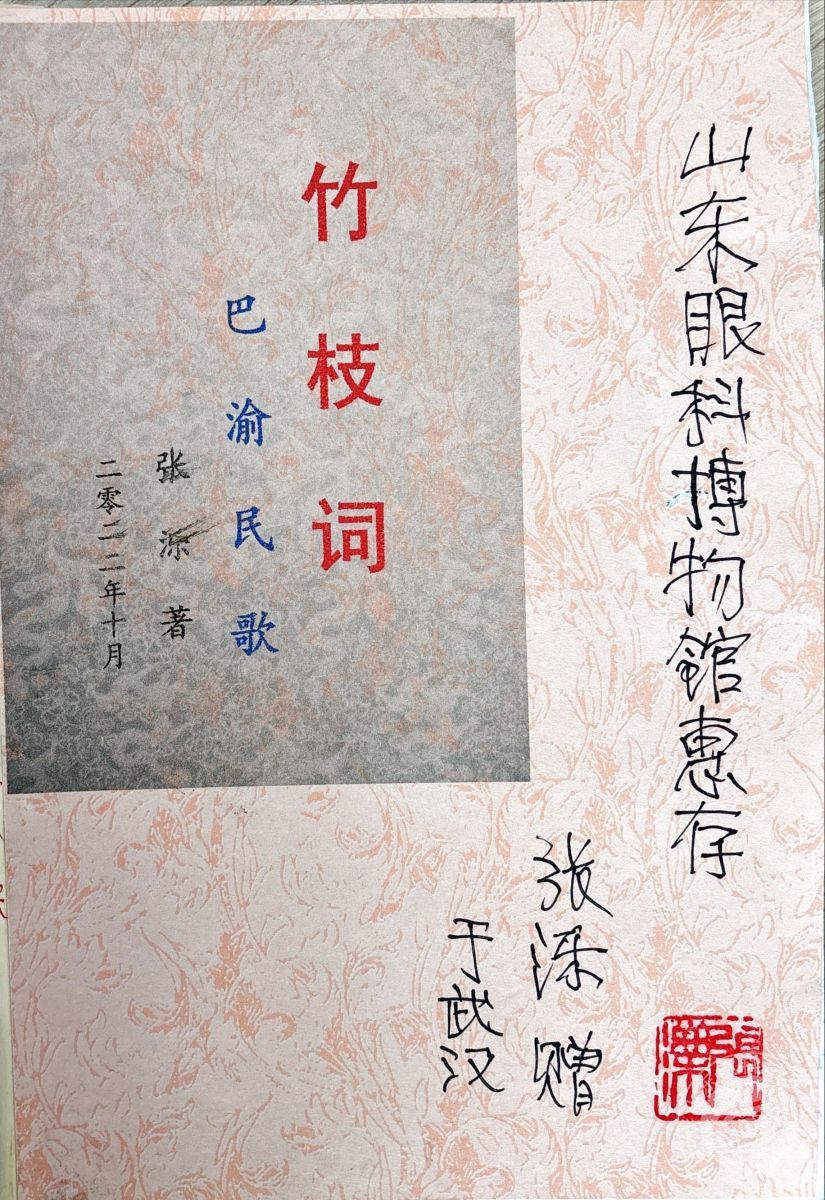 山东眼科博物馆惠存
张深赠
于武汉
竹枝词
巴渝民歌
张深著
二零二二年十月